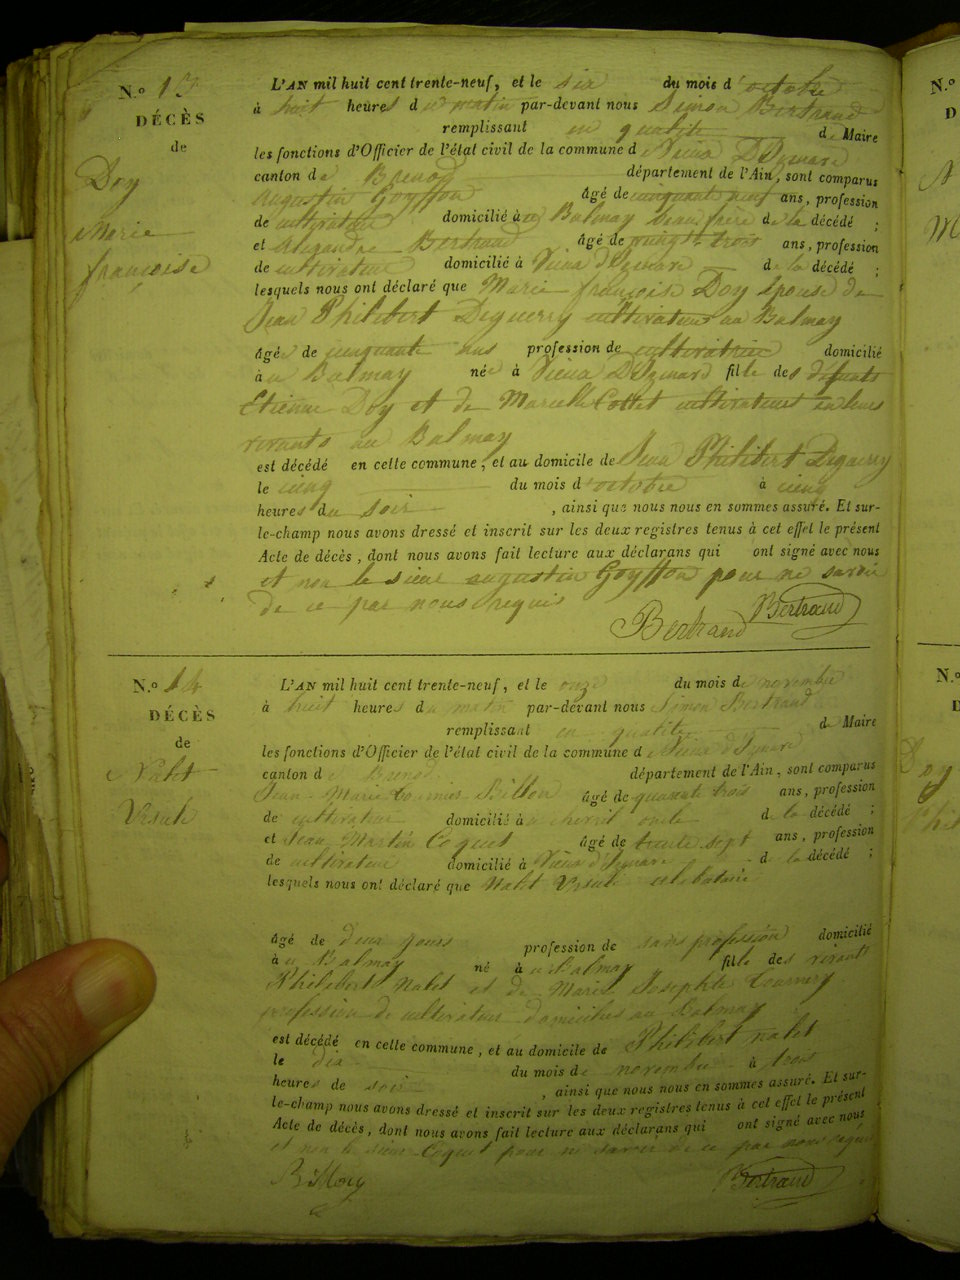 N.º 13
DÉCÈS
de
Doy
Marie
françoise
L'AN mil huit cent trente-neuf, et le six du mois d'octobre
à huit heures du matin par-devant nous Simon Bertrand
remplissant en qualité de Maire
les fonctions d'Officier de l'état civil de la commune de Vieux D'Izenave
canton de Brenod département de l'Ain, sont comparus
Augustin Goyffon âgé de cinquante neuf ans, profession
de cultivateur domicilié au Balmay beau frère de la décédé ;
et Alexandre Bertrand âgé de vingt trois ans, profession
de cultivateur domicilié à Vieux d'Izenave de la décédé ;
lesquels nous ont déclaré que Marie françoise Doy épouse de
Jean Philibert Deguerry cultivateur au Balmay
âgée de cinquante ans profession de cultivatrice domicilié
au Balmay née à Vieux D'Izenave fille des défunts
Etienne Doy et de Marcelle Cottet cultivateurs en leurs
vivants au Balmay
est décédé en cette commune, et au domicile de Jean Philibert Deguerry
le cinq du mois d'octobre à cinq
heures du soir , ainsi que nous nous en sommes assuré. Et sur-
le-champ nous avons dressé et inscrit sur les deux registres tenus à cet effet le présent
Acte de décès, dont nous avons fait lecture aux déclarans qui ont signé avec nous
et non le sieur augustin Goyffon pour ne savoir
de ce par nous requis
Bertrand Bertrand
N.º 14
DÉCÈS
de
Nalet
Ursule
L'AN mil huit cent trente-neuf, et le onze du mois de novembre
à huit heures du matin par-devant nous Simon Bertrand
remplissant en qualité de Maire
les fonctions d'Officier de l'état civil de la commune de Vieux d'Izenave
canton de Brenod département de l'Ain, sont comparus
Jean Marie Billon âgé de quarante trois ans, profession
de cultivateur domicilié à oncle de la décédé ;
et Jean Martin Coquet âgé de trente sept ans, profession
de cultivateur domicilié à Vieux d'Izenave de la décédé ;
lesquels nous ont déclaré que Nalet Ursule célibataire
âgé de deux jours profession de sans profession domicilié
au Balmay né au Balmay fille des vivants
Philibert Nalet et de Marie Josephte
profession de cultivateur domiciliés au Balmay
est décédé en cette commune, et au domicile de Philibert nalet
le dix du mois de novembre à trois
heures de soir , ainsi que nous nous en sommes assuré. Et sur-
le-champ nous avons dressé et inscrit sur les deux registres tenus à cet effet le présent
Acte de décès, dont nous avons fait lecture aux déclarans qui ont signé avec nous
et non le sieur Coquet pour ne savoir de ce par nous requis
Bertrand